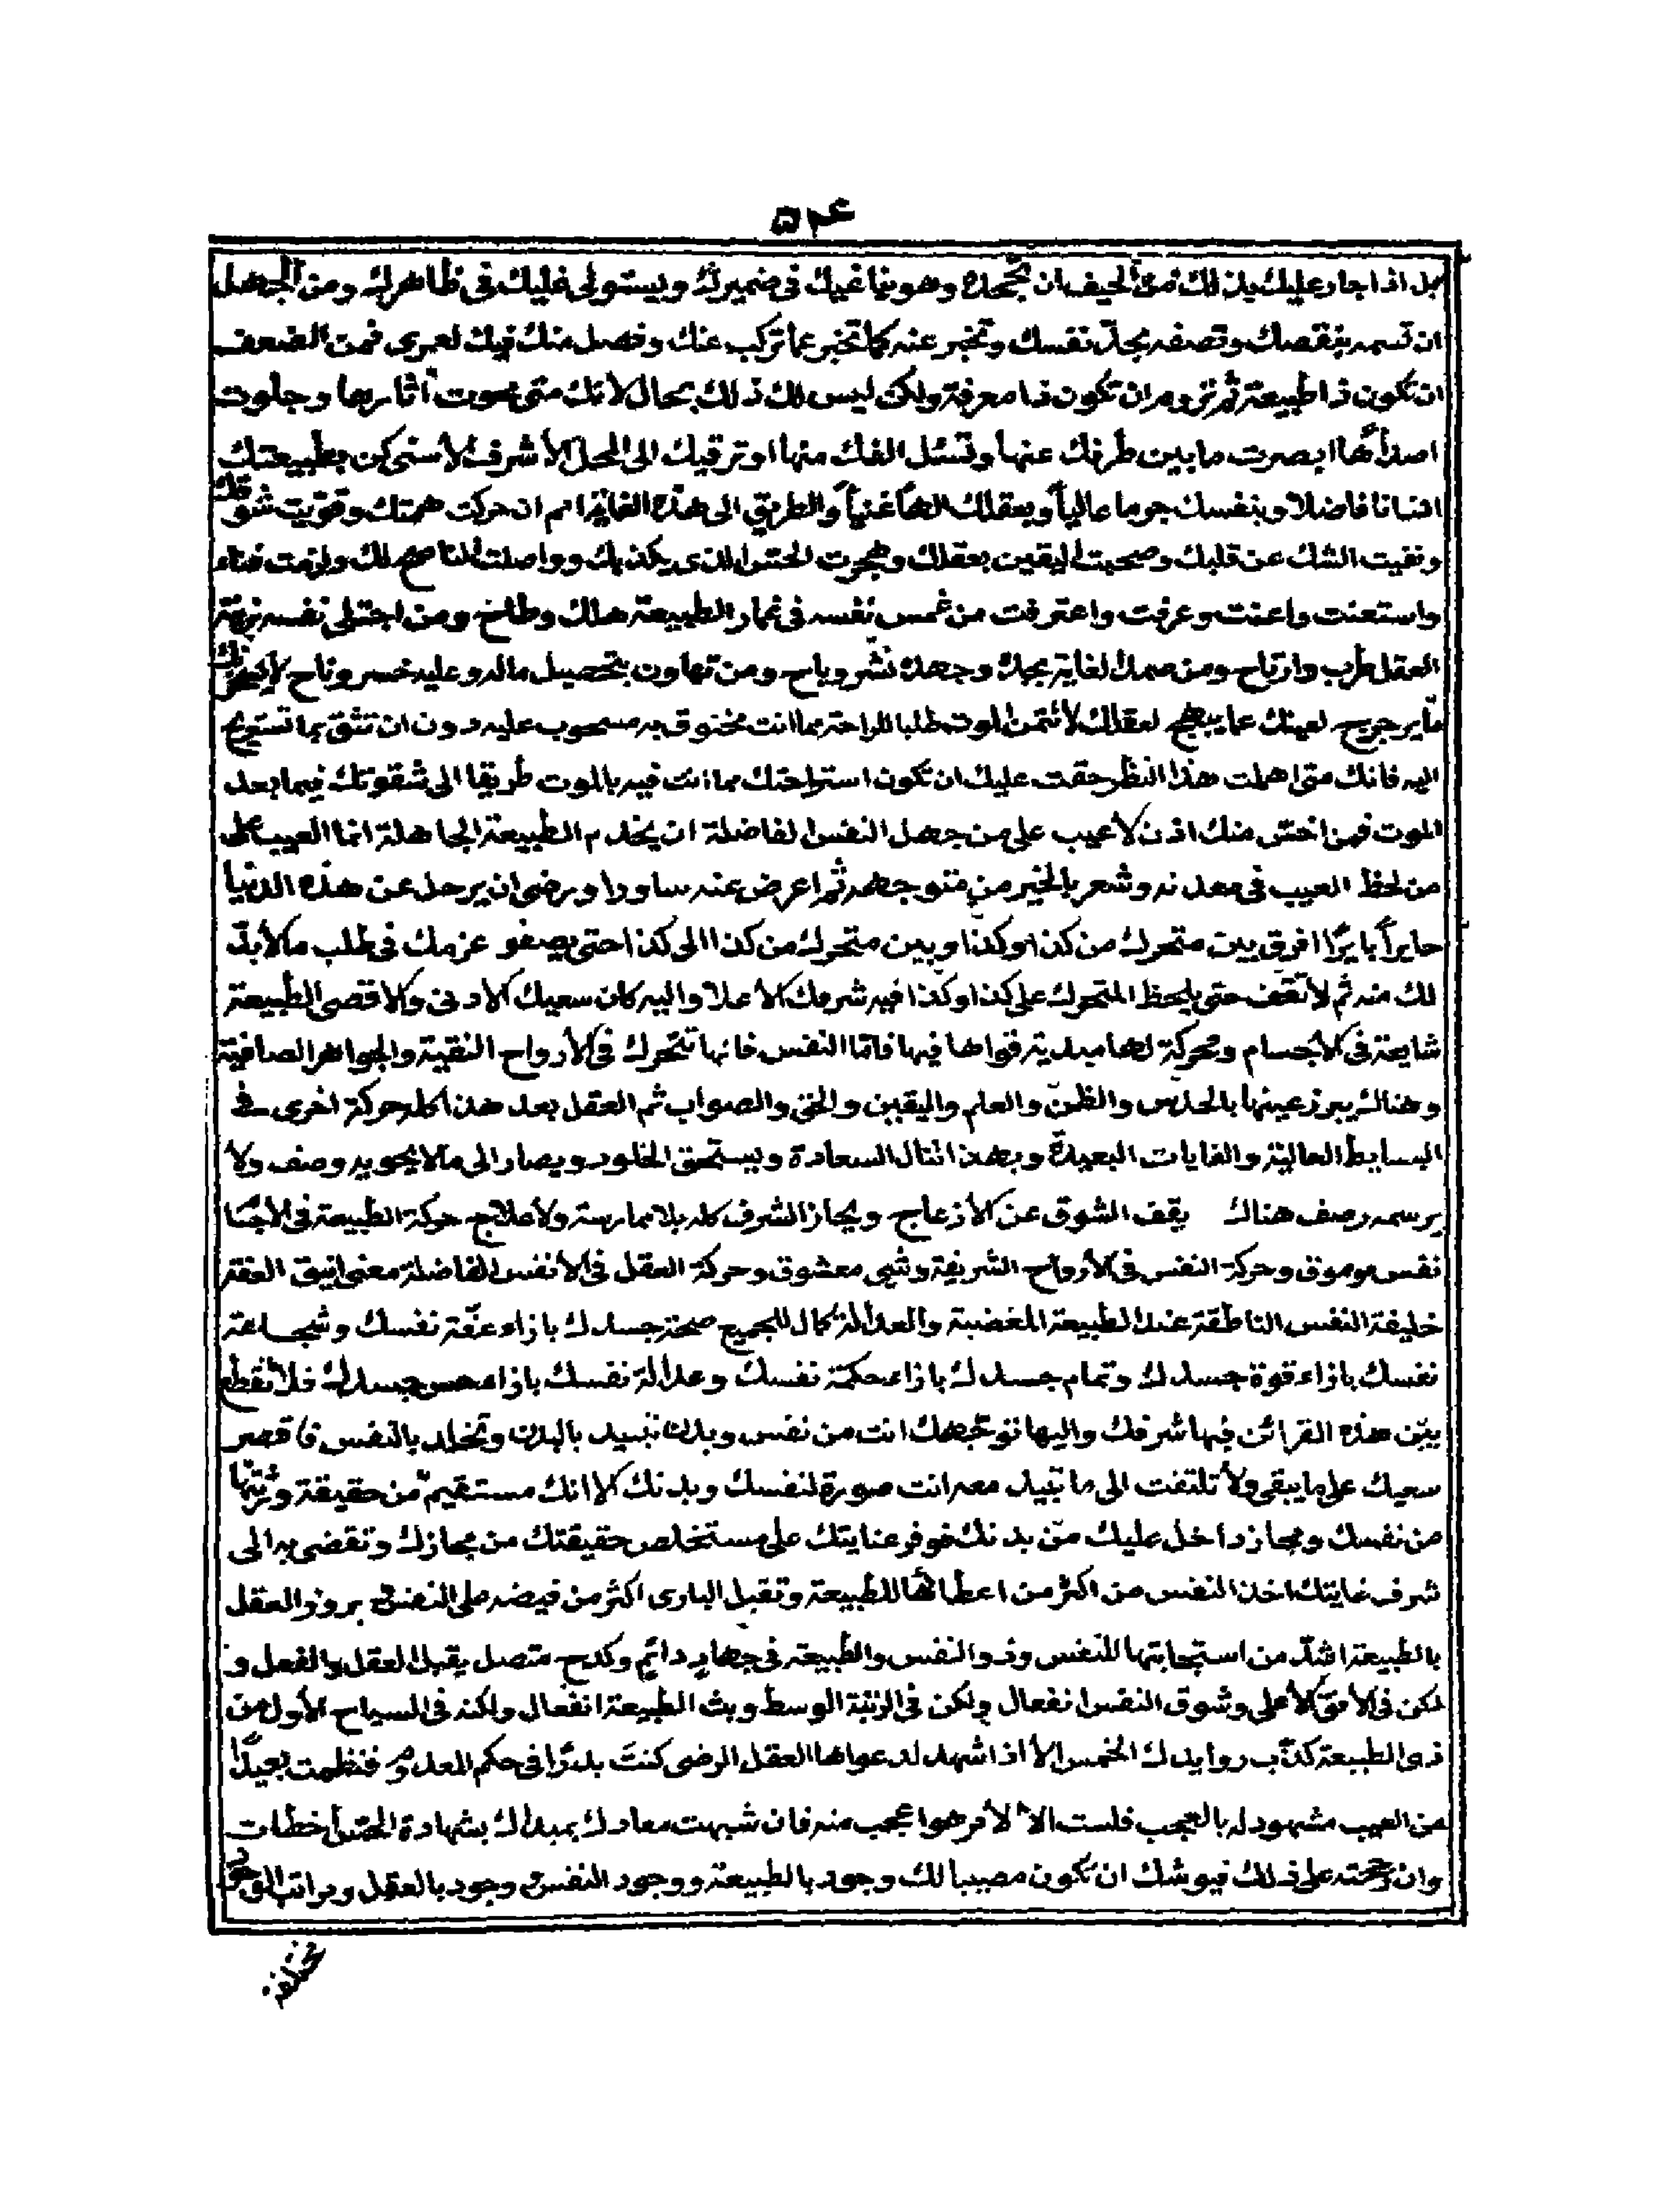 ۵۴
بل اذا جاد عليك بذلك فمن الحيف ان تجحده وهو يناغيك في ضميرك ويستولي عليك في ظاهرك ومن الجهل
ان تسمه بنقصك وتصفه بحد نفسك وتخبر عنه كما تخبر عما تركب عنك وفصل منك فيك لعمري فمن الضعف
ان تكون ذا طبيعة ثم تروم ان تكون ذا معرفة ولكن ليس لك ذلك بحال لانك متى محوت آثارها وجلوت
اصدأها ابصرت ما بين طرفك عنها وتسئل الفك منها او ترقيك الى المحل الأشرف الأسنى كن بطبيعتك
انسانا فاضلا وبنفسك جرما عالياً وبعقلك الهاً غنياً والطريق الى هذه الغاية امم ان حركت همتك وقويت شوقك
ونفيت الشك عن قلبك وصحبت اليقين بعقلك وهجرت الحس الذي يكذبك وواصلت الناصح لك ولزمت فناء
واستعنت واعنت وعرفت واعترفت من غمس نفسه في غمار الطبيعة هلك وطاخ ومن اجتلى نفسه بزينة
العقل طرب وارتاح ومن صمد لغاية بجد وجهد نشر وباح ومن تهاون بتحصيل ماله وعليه خسر وناح
لعينك عما يبهج لعقلك لا تتمن الموت طلبا للراحة مما انت مخنوق به مسحوب عليه دون ان تثق بما تستريح
اليه فانك متى اهملت هذا النظر حقت عليك ان تكون استراحتك مما انت فيه بالموت طريقا الى شقوتك فيما بعد
الموت فمن اخس منك اذن لا عيب على من جهل النفس الفاضلة ان يخدم الطبيعة الجاهلة انما العيب على
من لحظ العيب في معدنه وشعر بالخير من متوجهه ثم اعرض عنه سادرا ورضي ان يرحل عن هذه الدنيا
حايراً بايراً افرق بين متحرك من كذا وكذا وبين متحرك من كذا الى كذا حتى يصفو عزمك في طلب ما لا بد
لك منه ثم لا تقف حتى يلحظ المتحرك على كذا وكذا فيه شرفك الاعلا واليه كان سعيك الادنى والاقصى الطبيعة
شايعة في الأجسام ومحركة لها مبدية قواها فيها فاما النفس فانها تتحرك في الأرواح النقية والجواهر الصافية
وهناك يبرز عينها بالحدس والظن والعلم واليقين والحق والصواب ثم العقل بعد هذا كله حركة اخرى في
البسايط العالية والغايات البعيدة وبهذا تنال السعادة ويستحق الخلود ويصار الى ما لا يحويه وصف ولا
يرسمه رصف هناك يقف الشوق عن الأزعاج ويحاز الشرف كله بلا ممارسة ولا علاج حركة الطبيعة في الأجسا
نفس موموق وحركة النفس في الأرواح الشريفة وشي معشوق وحركة العقل في الأنفس الفاضلة معنى انيق العفة
خليفة النفس الناطقة عند الطبيعة الغضبية والعدالة كمال للجميع صحة جسدك بازاء عفة نفسك وشجاعة
نفسك بازاء قوة جسدك وتمام جسدك بازاء حكمة نفسك وعدالة نفسك بازاء حسن جسدك فلا تقطع
بين هذه القرائن فبها شرفك واليها توجهك انت من نفس وبدن تبيد بالبدن وتخلد بالنفس فاقصر
سعيك على ما يبقى ولا تلتفت الى ما تبيد معه انت صورة لنفسك وبدنك الا انك مستقيم من حقيقة
من نفسك ومجاز داخل عليك من بدنك فوفر عنايتك على مستخلص حقيقتك من مجازك وتفضي به الى
شرف غايتك اخذ النفس من اكثر من اعطائها للطبيعة وتقبل البارى اكثر من فيضه على النفس بروز العقل
بالطبيعة اشد من استجابتها للنفس وذو النفس والطبيعة في جهاد دائم وكدح متصل يقبل العقل والفعل و
لكن في الأفق الأعلى وشوق النفس انفعال ولكن في الرتبة الوسط وبث الطبيعة انفعال ولكنه في السياح الأول من
ذى الطبيعة كذب روايدك الخمس الا اذا شهد لدعواها العقل الرضى كنت بدرًا في حكم العدل
من العجب مشهود له بالعجب فلست الا لامر هو اعجب منه فان شبهت معادك بمبدأك بشهادة الحس أخطات
وان على ذلك فيوشك ان تكون مصيبا لك وجود بالطبيعة ووجود النفس وجود بالعقل ومراتب الوجود
مختلفة